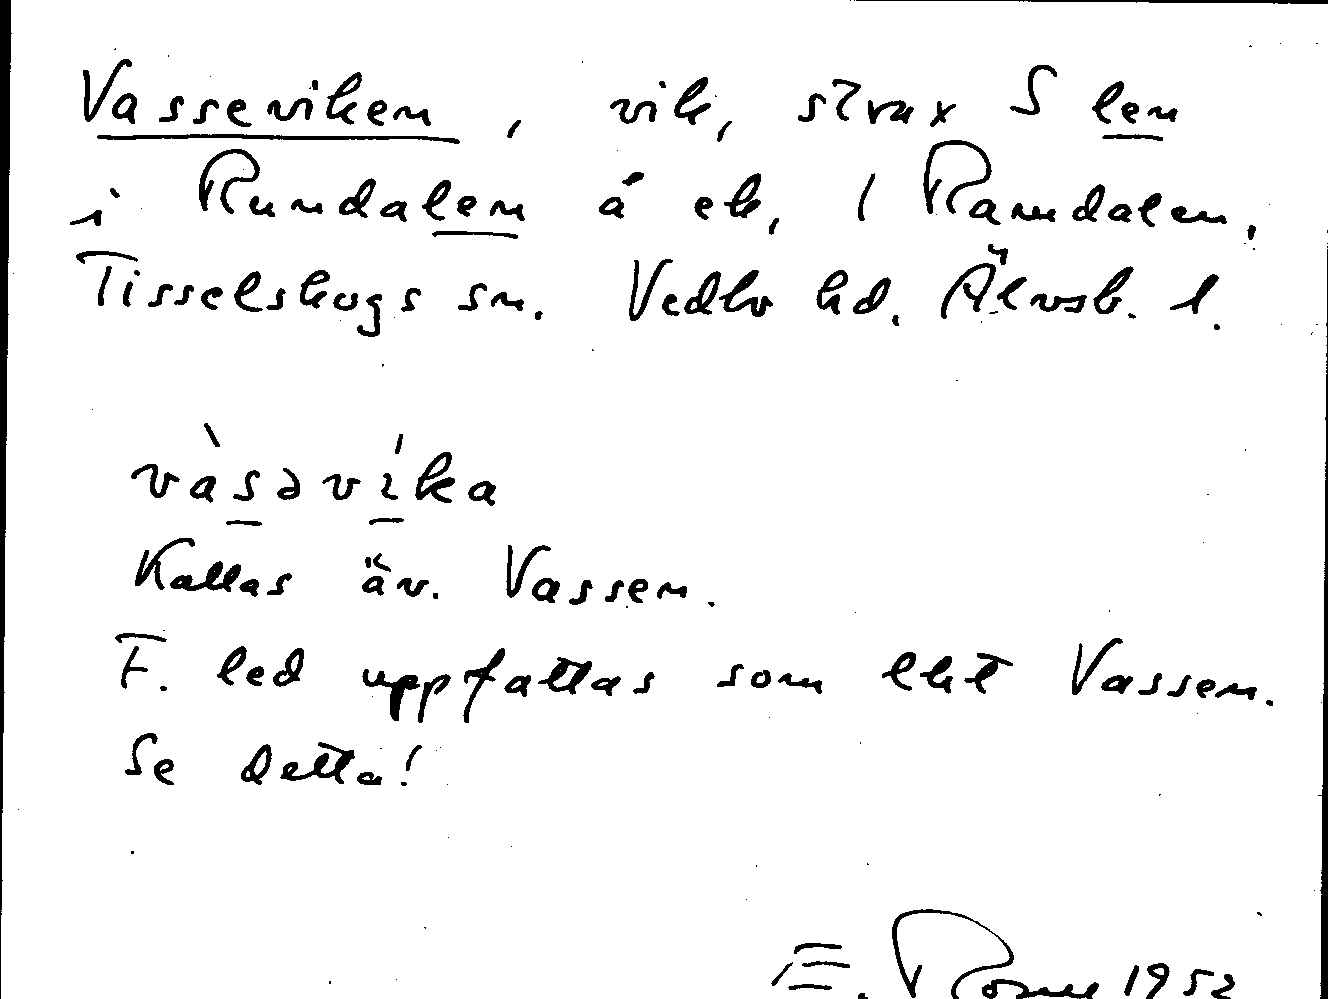 Vasseviken, vik, strax S len
i Rundalen å ek, 1 Ramdalen,
Tisselskogs sn. Vedbo hd. Älvsb. l.
vàsəvíka
Kallas äv. Vassen.
F. led uppfattas som ekt Vassen.
Se detta!
E. 1952